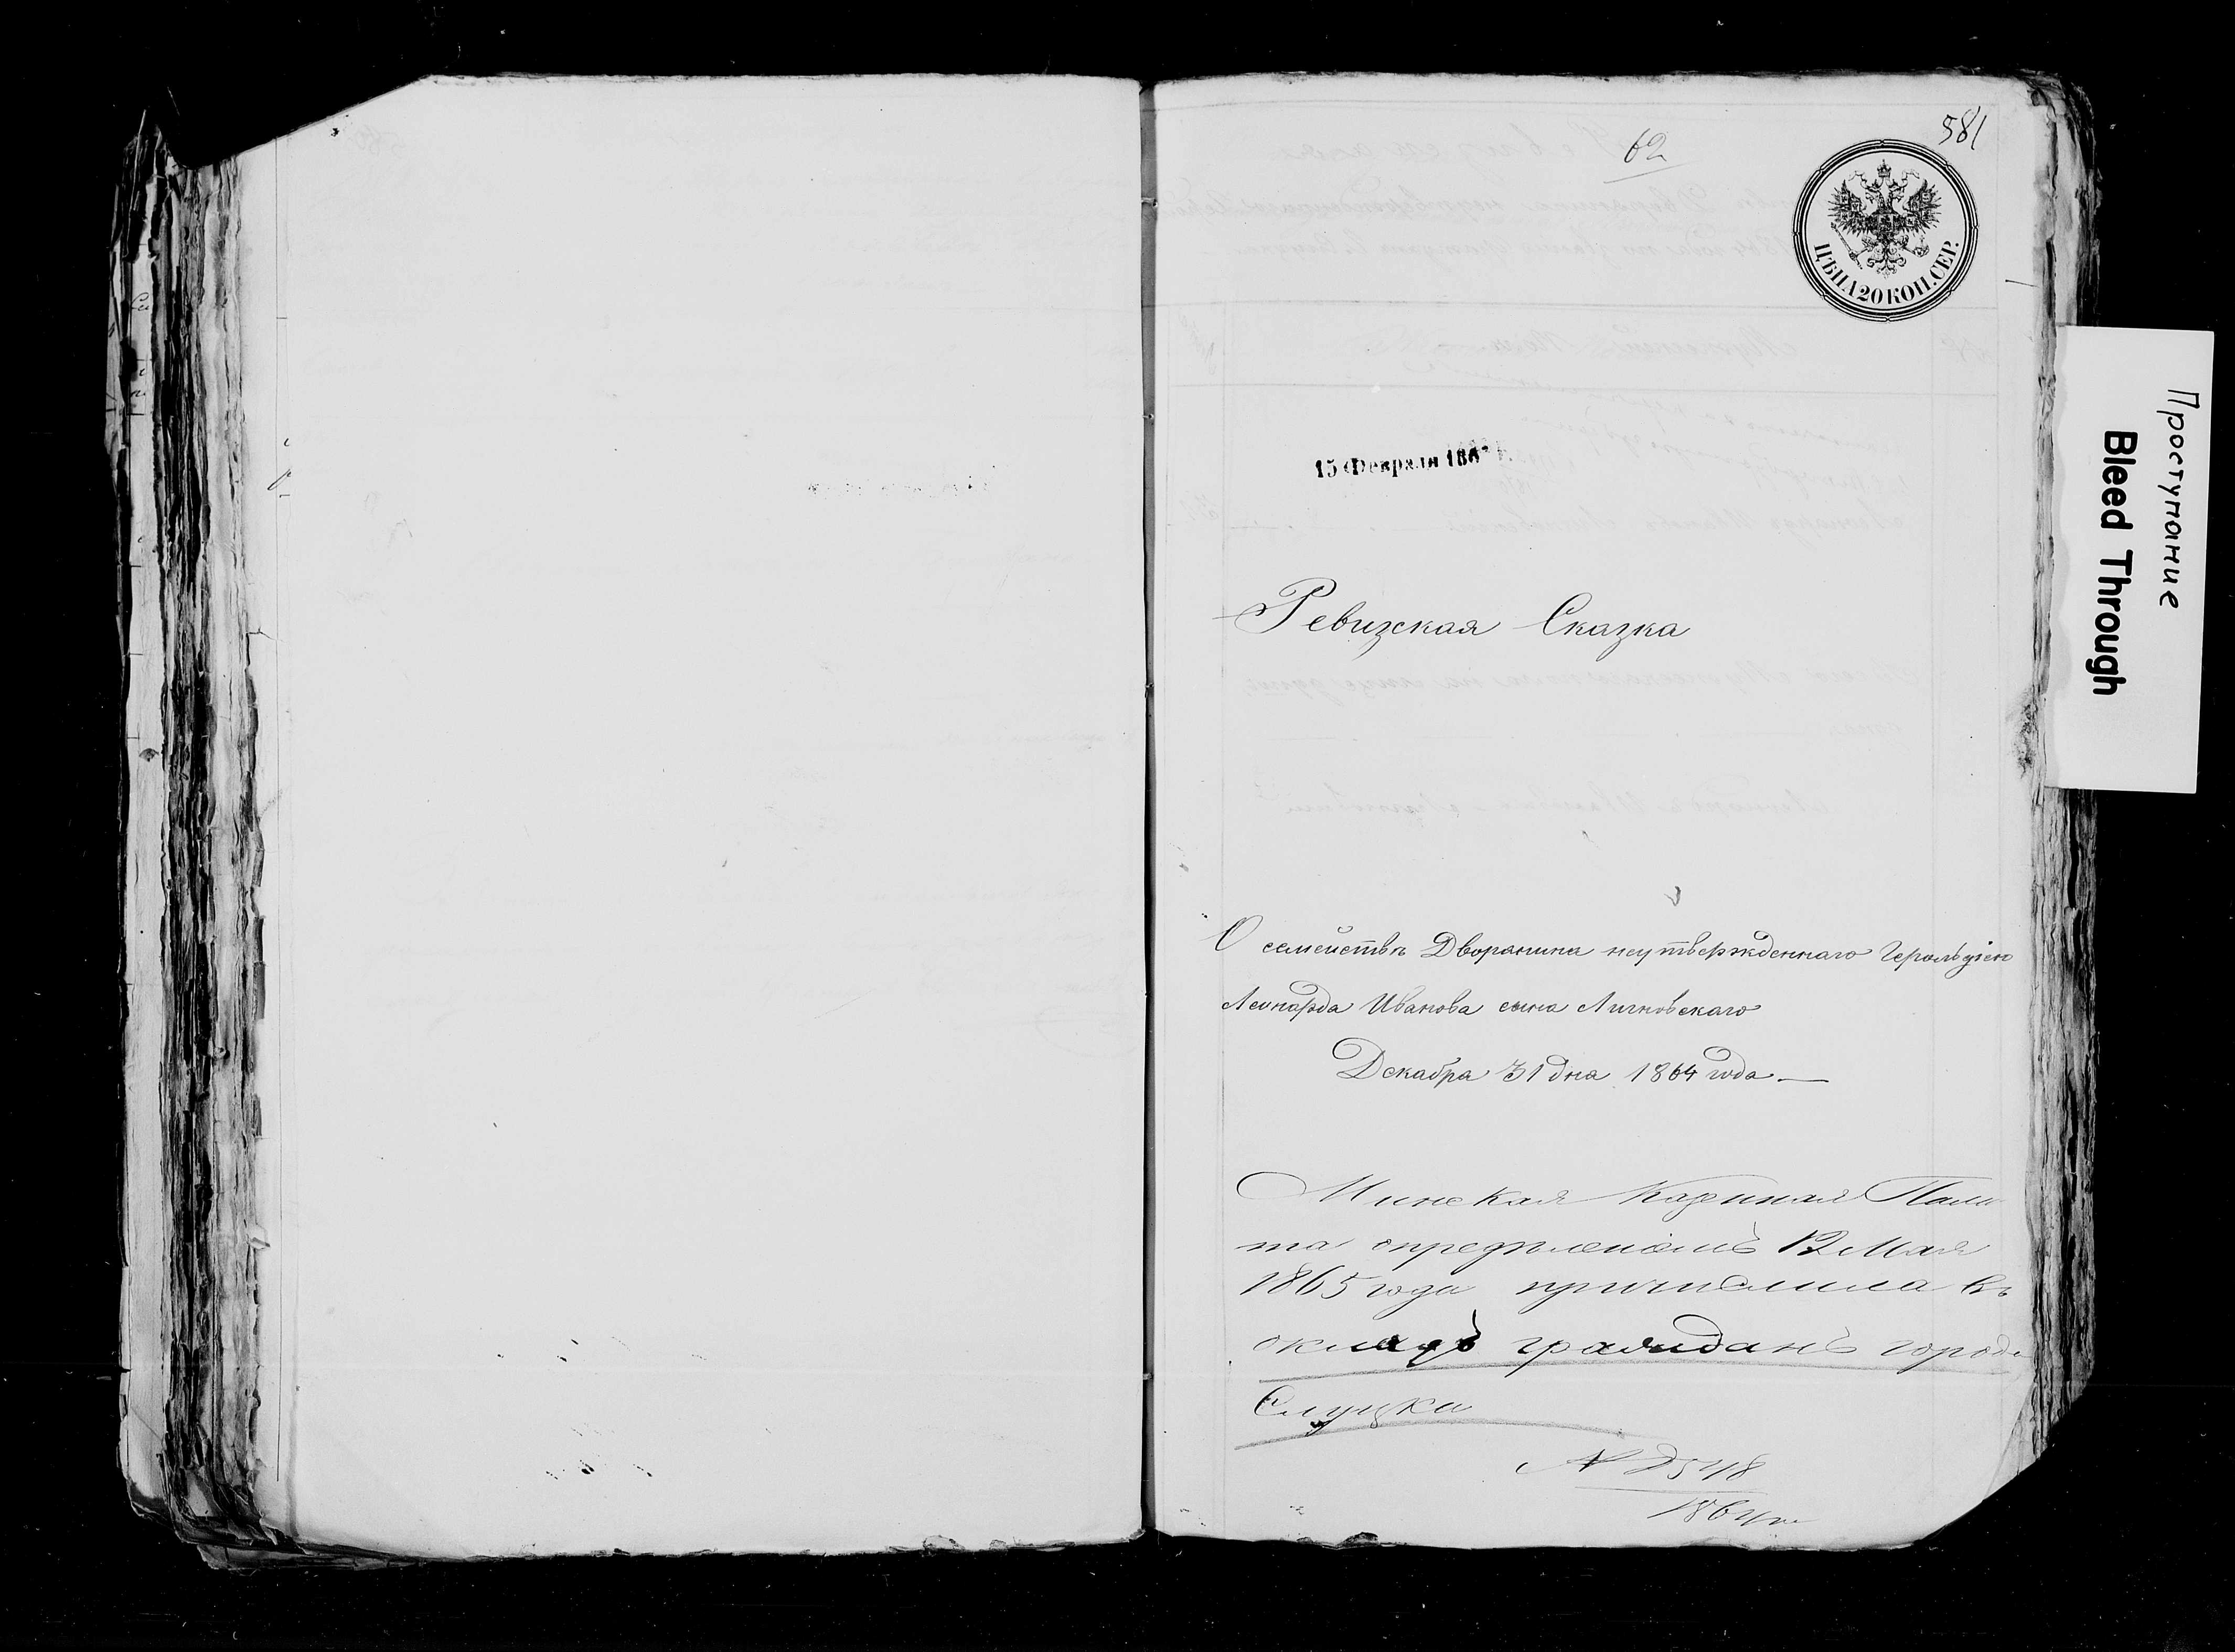 581
62
ЦѢНА 20 КОП. СЕР.
Проступание
Bleed Through
15 Февраля
Ревизская Сказка
О семействѣ Дворянина неутвержденнаго Герольдіею
Леонарда Иванова сына Личковскаго
Декабря 31 дня 1864 года
Минская Казенная Пала
та опредѣленіемъ 12 Мая
1865 года причислила въ
окладъ гражданъ города
Слуцка
№ 2548
1864